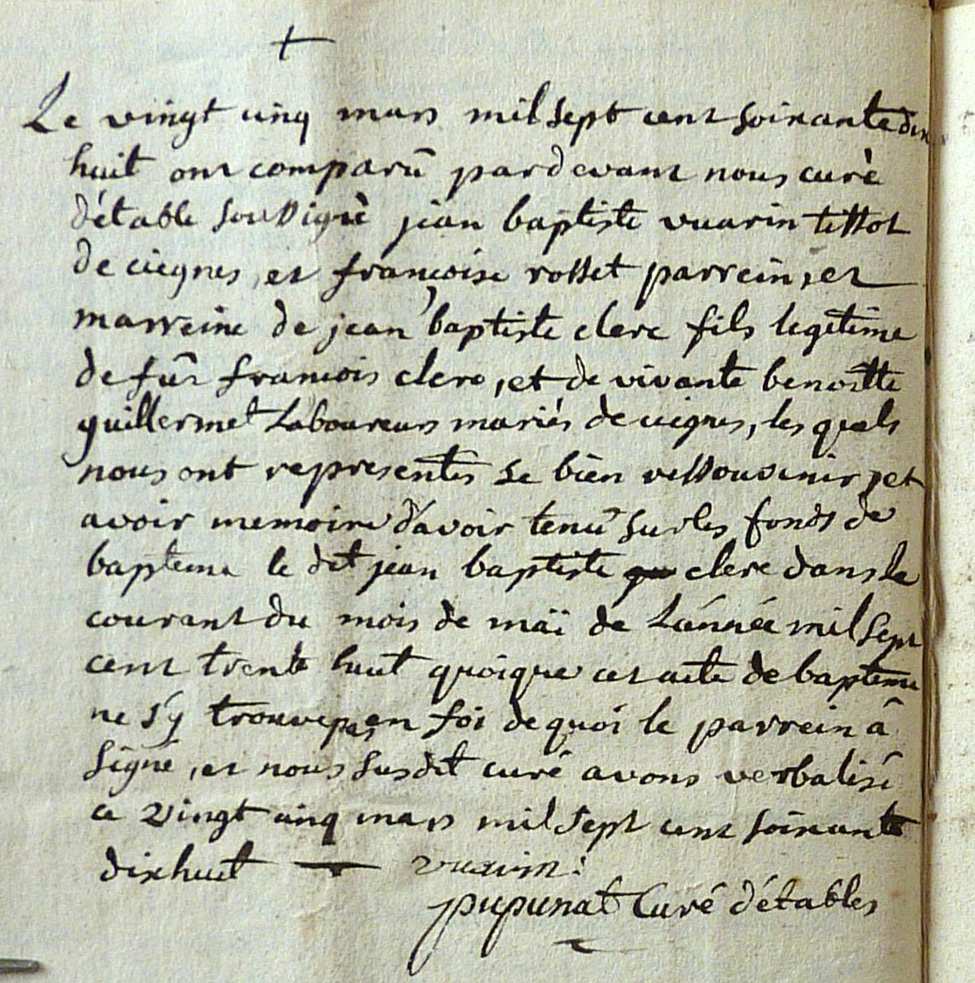 Le vingt cinq mars mil sept cent soixante dix
huit ont comparû pardevant nous curè
d'étable soussignè jean baptiste vuarin tissot
de ciegnes, et francoise rosset parrein, et
marreine de jean baptiste clerc fils legitime
de fûs francois clerc, et de vivante benoitte
guillermet Laboureurs mariés de ciegnes, les quels
nous ont representés se bien ressouvenir, et
avoir memoire d'avoir tenû sur les fonds de
bapteme le dit jean baptiste clerc dans le
courant du mois de maï de L'année mil sept
cent trente huit quoique cet acte de bapteme
ne s'y trouve pas, en foi de quoi le parrein â
signé, et nous susdit curé avons verbalisé
ce vingt cinq mars mil sept cent soixante
dixhuit — vuarin:
pupunat Curé d'étables